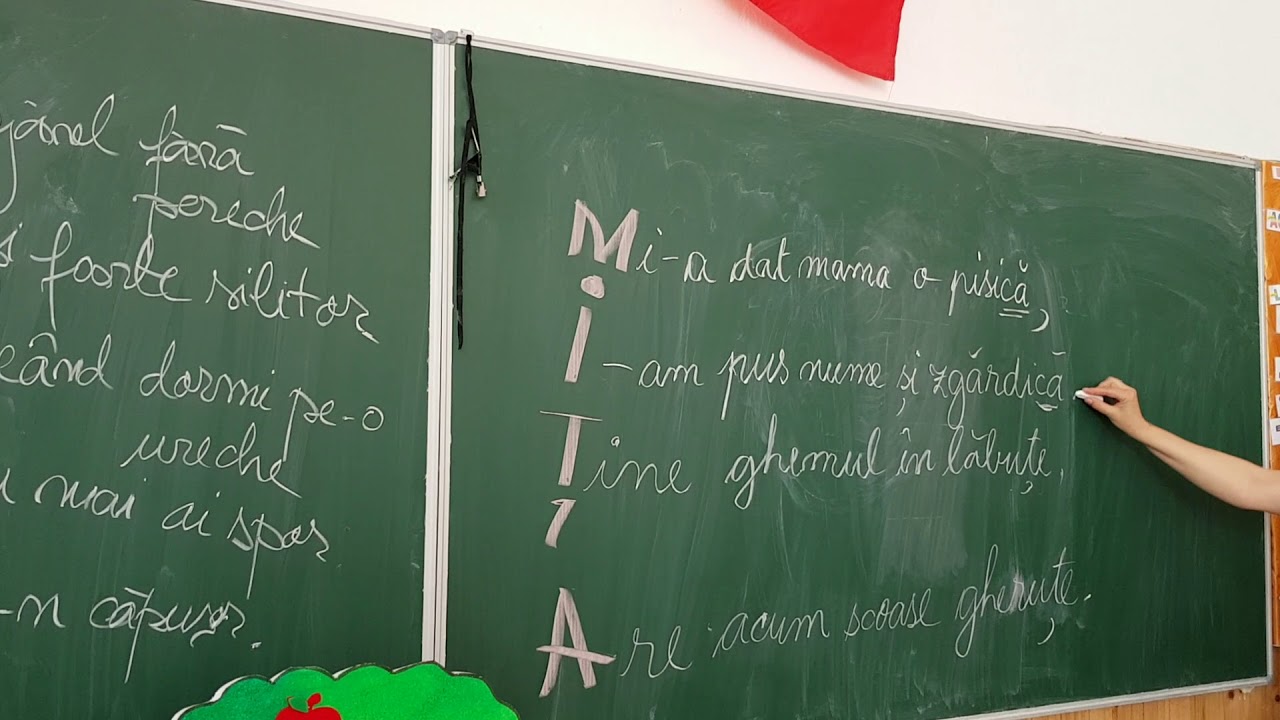 fără
pereche
și foarte silitor
când dormi pe-o
ureche
mai ai spor
-n căpușor.
Mi-a dat mama o pisică,
I-am pus nume și zgărdică.
Ține ghemul în lăbuțe,
Are acum scoase gheruțe.